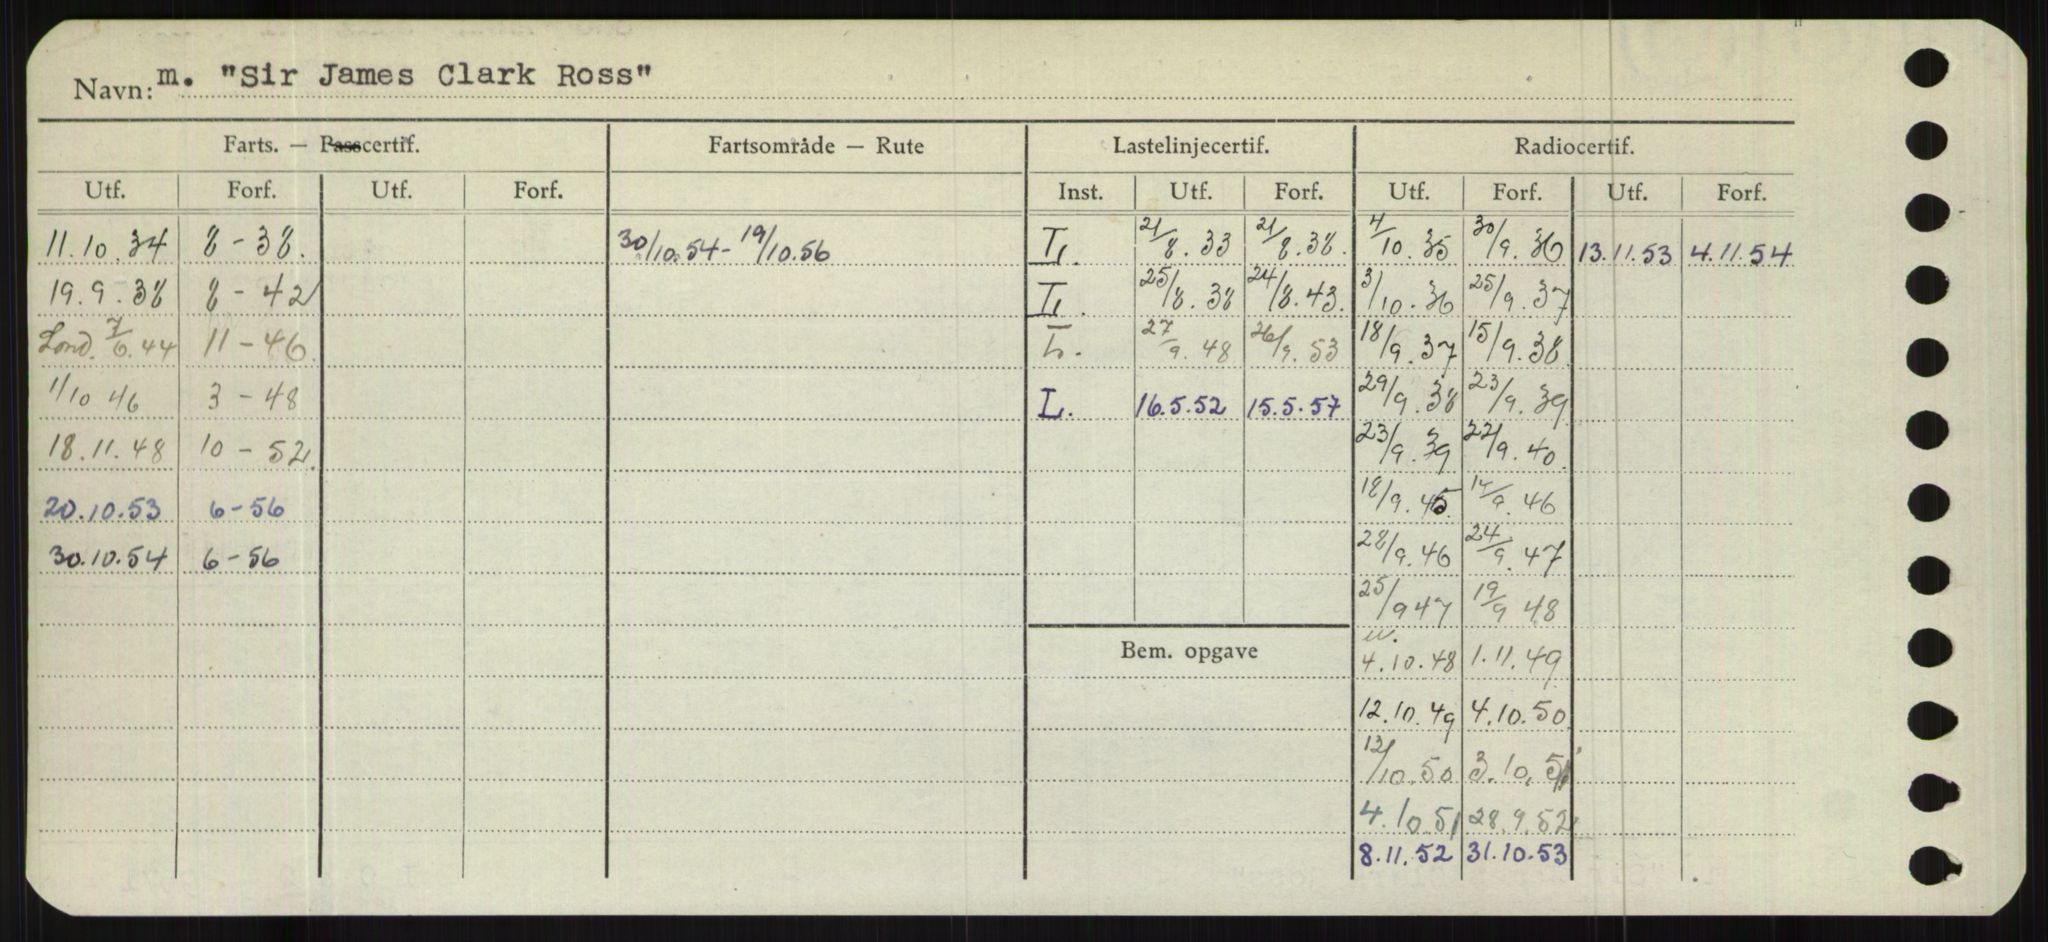 Navn: m. "Sir James Clark Ross"
Farts. — Passcertif. Fartsområde — Rute Lastelinjecertif. Radiocertif.
Utf. Forf. Utf. Forf. Inst. Utf. Forf. Utf. Forf. Utf. Forf.
11.10.34 8-38. 30/10.54-19/10.56 L. 21/8.33 21/8.38. 4/10.35 30/9.36 13.11.53 4.11.54
19.9.38 8-42 L. 25/8.38 24/8.43. 3/10.36 25/9.37
Lond. 7/6.44 11-46. L. 27/9.48 26/9.53 18/9.37 15/9.38
1/10 46 3-48 L. 16.5.52 15.5.57 29/9.38 23/9.39
18.11.48 10-52. 23/9.39 22/9.40
20.10.53 6-56 18/9.45 14/9.46
30.10.54 6-56 28/9.46 24/9.47
25/9 47 19/9 48
Bem. opgave 4.10.48 1.11.49
12.10.49 4.10.50
12/10.50 3.10.51
4.10 51 28.9.52
8.11.52 31.10.53